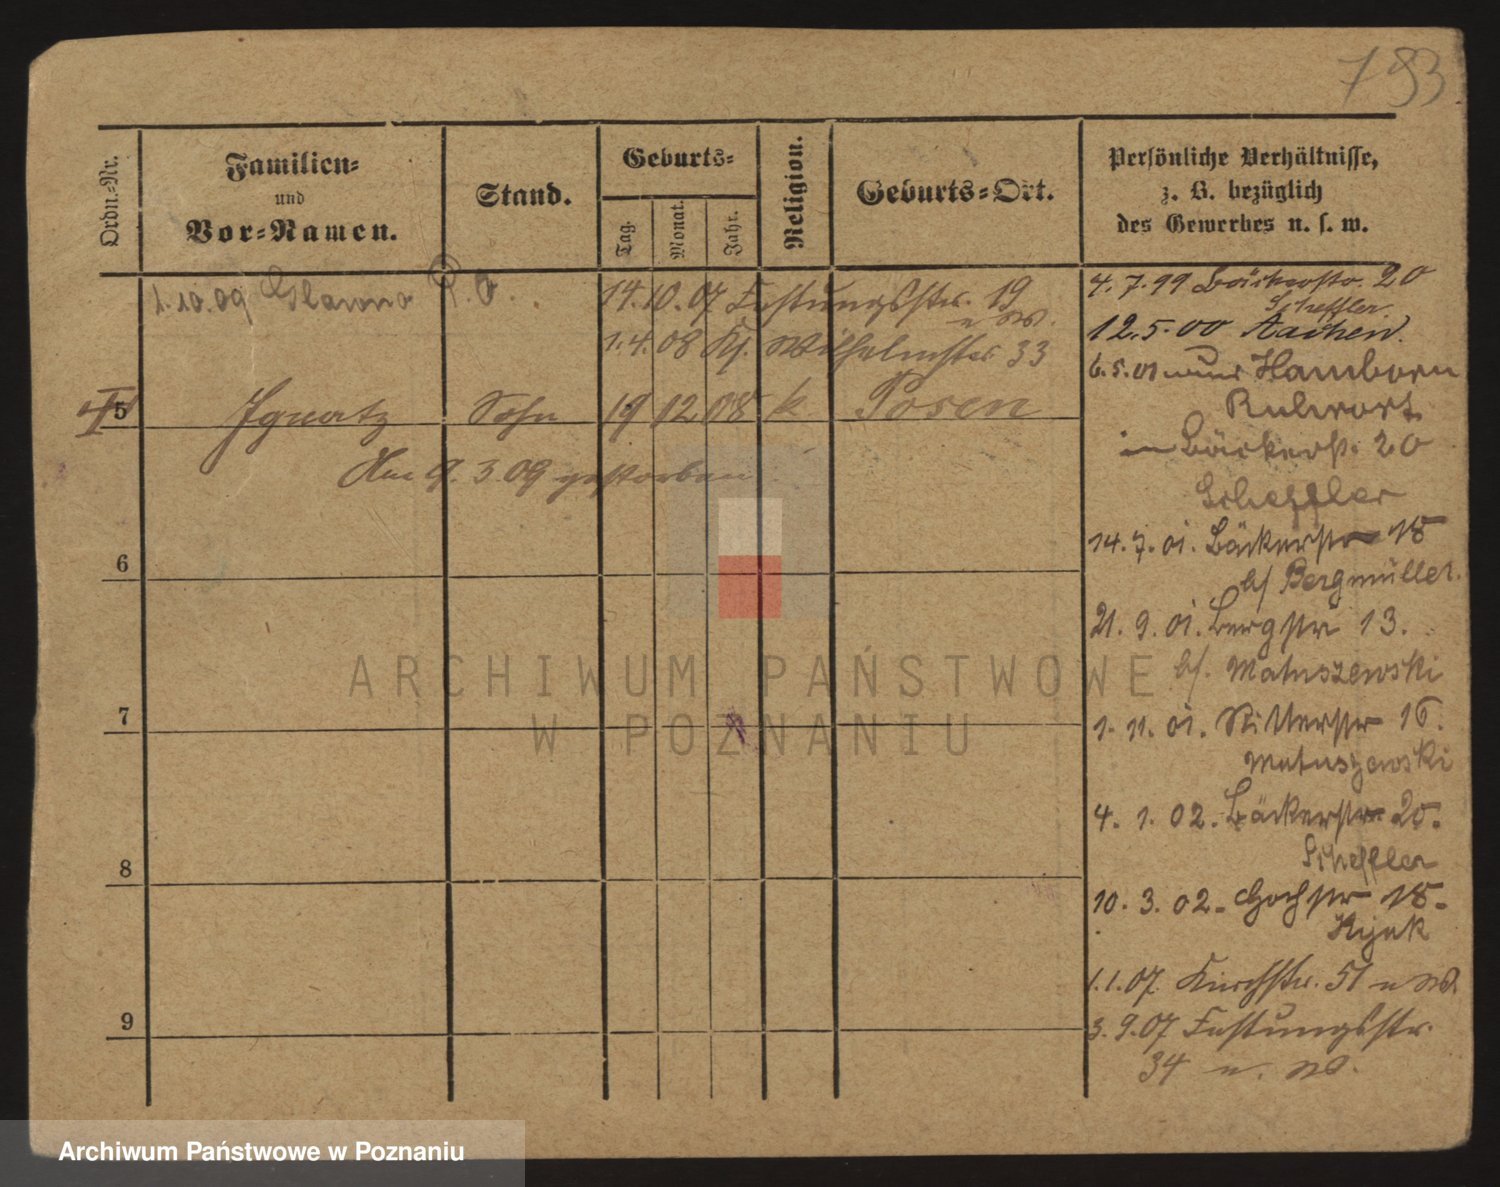 793
Ordn.-Nr.
Familien-
und
Vor-Namen.
Stand.
Geburts-
Tag.
Monat.
Jahr.
Religion.
Geburts-Ort.
Persönliche Verhältnisse,
z. B. bezüglich
des Gewerbes u. s. w.
1.10.09 Glowno P. O.
14.10.07 Festungsstr. 19
u W.
1.4.08 Kg. Wilhelmstr. 33
5 Ignatz Sohn 19 12 08 k. Posen
Am 9. 3. 09 gestorben
6
7
8
9
4. 7. 99 Bäckerstr. 20
Scheffler
12. 5. 00 Aachen.
6. 5. 01 Hamborn
Ruhrort
in Bäckerstr. 20
Scheffler
14. 7. 01. Bäckerstr 18
b/ Bergmüller.
21. 9. 01. Bergstr 13.
b/. Matuszewski
1. 11. 01. Ritterstr 16.
Matuszewski
4. 1. 02. Bäckerstr 20.
Scheffler
10. 3. 02. Hochstr 18.
Kijak
1.1.07. Kirchstr. 51 u W.
3. 9. 07 Festungsstr.
34 u. W.
ARCHIWUM PAŃSTWOWE
W POZNANIU
Archiwum Państwowe w Poznaniu